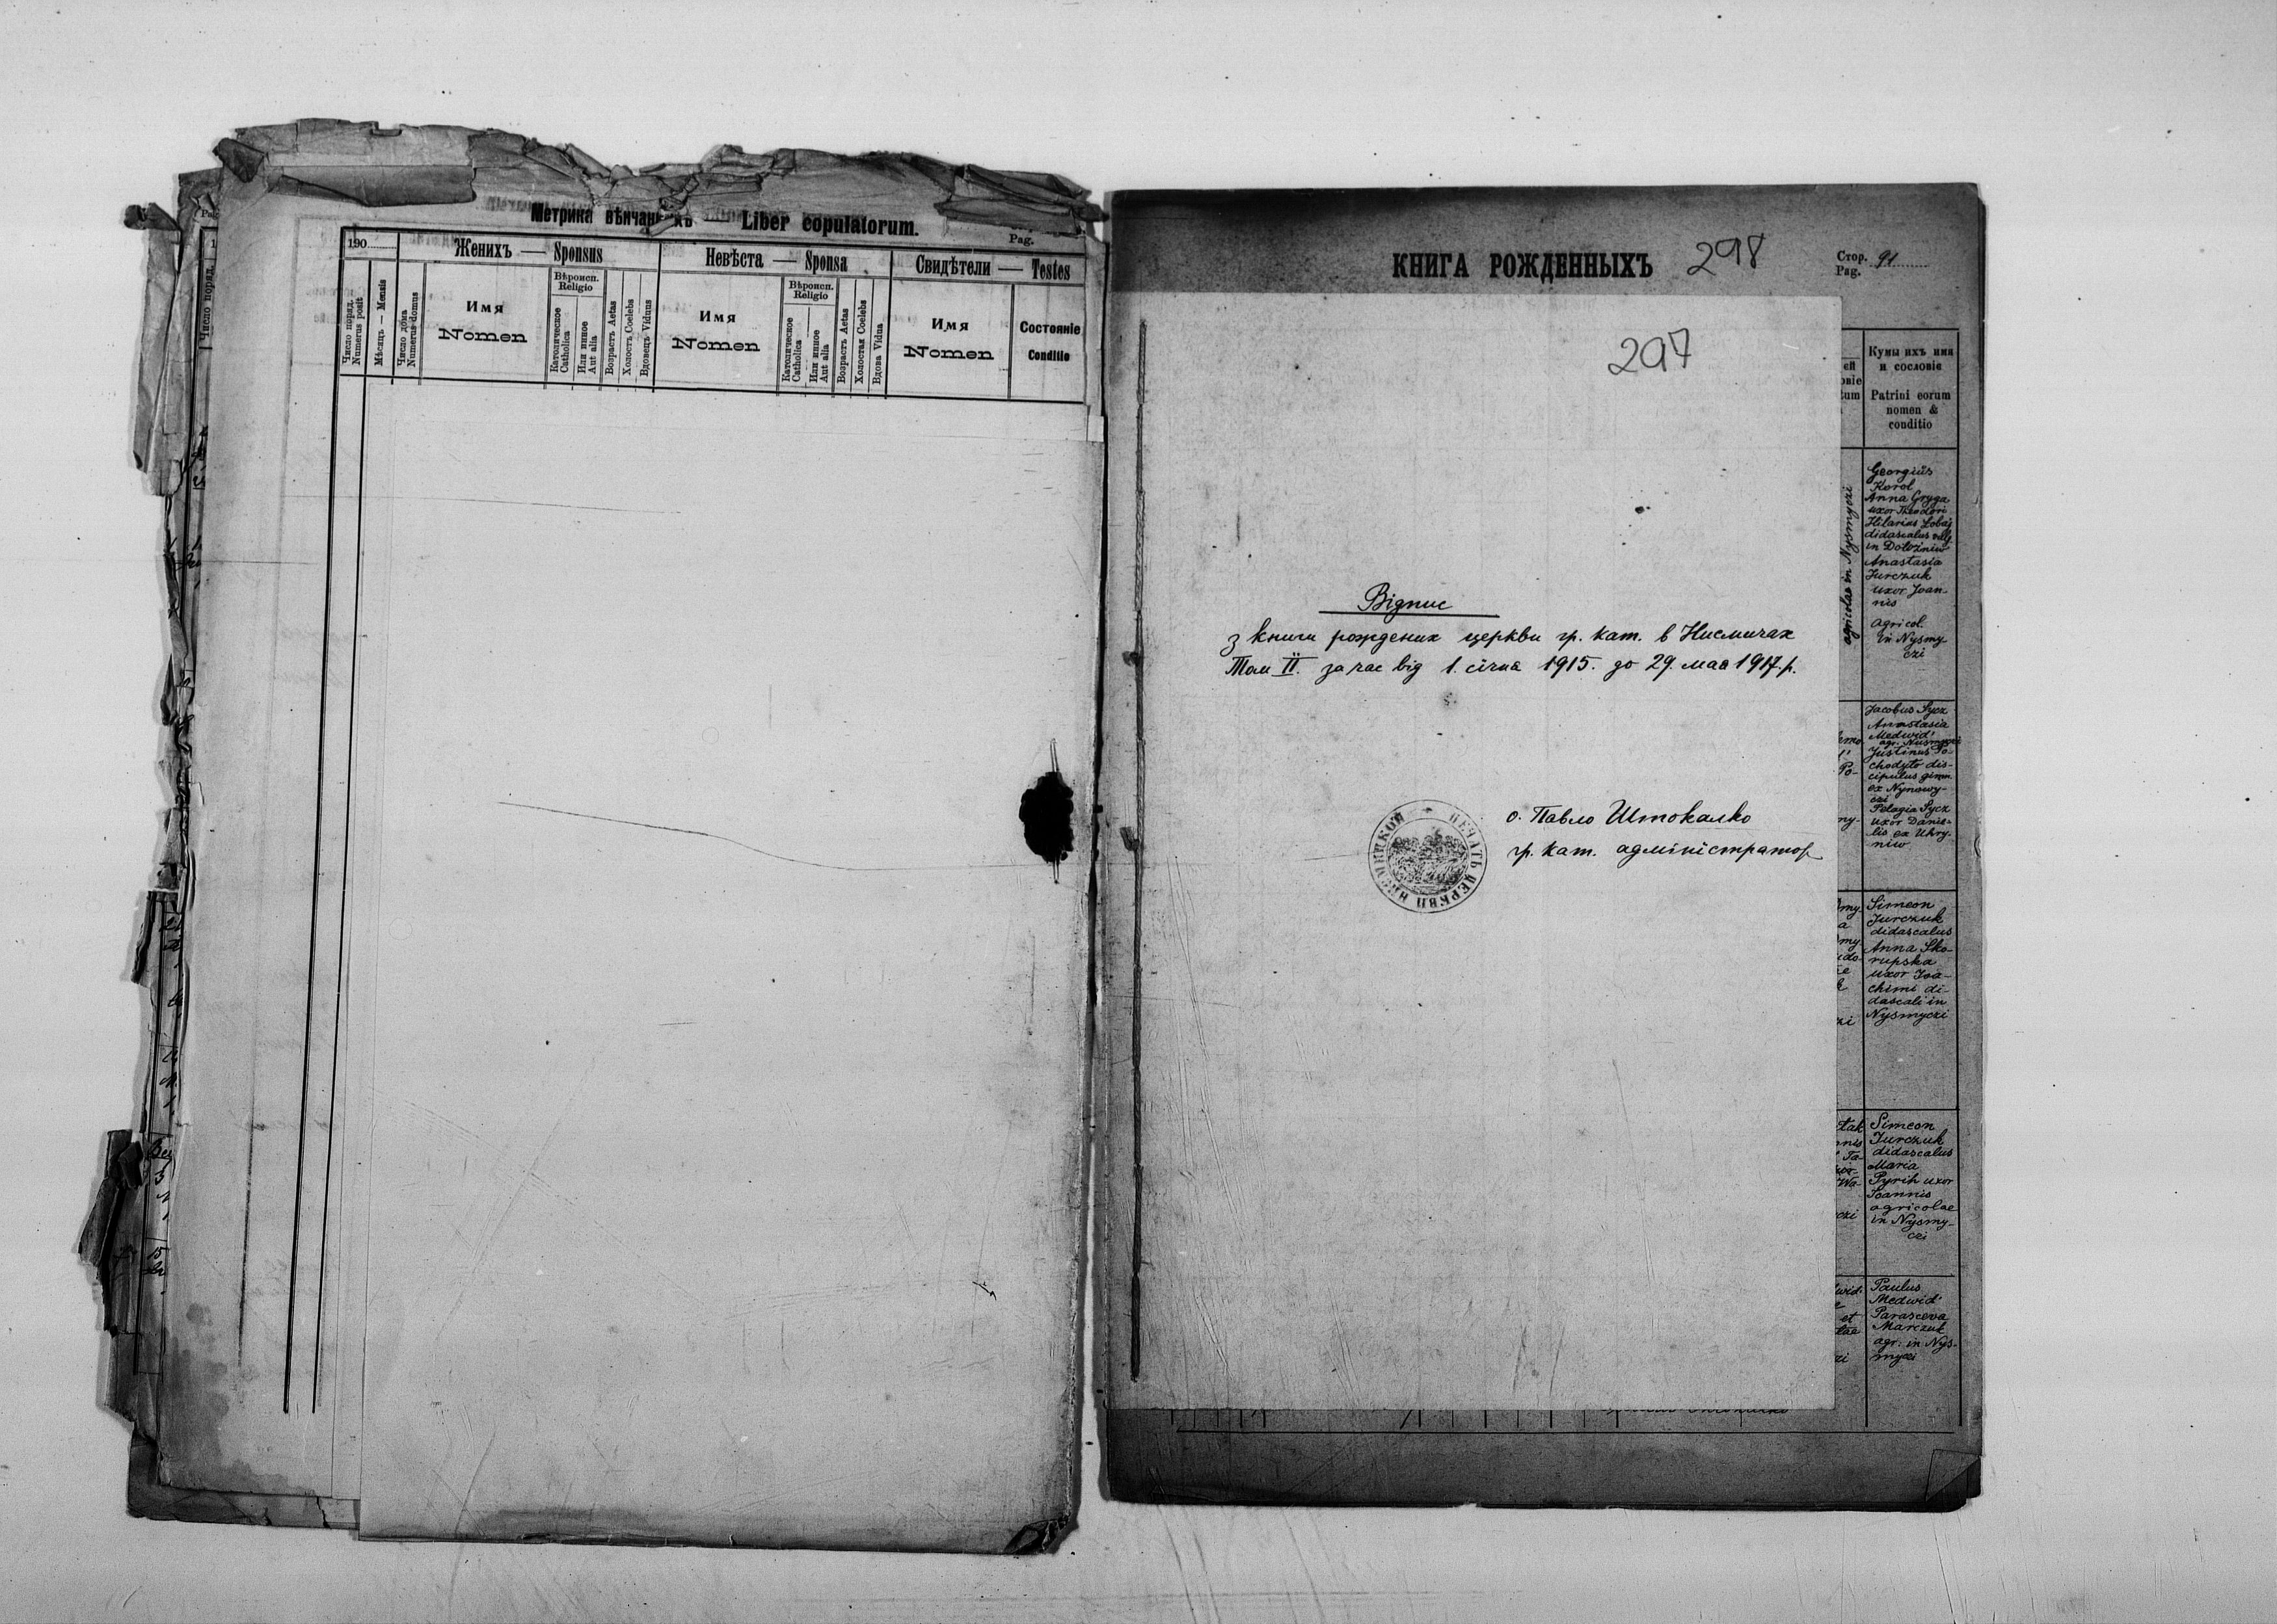 Метрика вѣнчан
Liber copulatorum.
Pag.
190
Женихъ — Sponsus
Невѣста — Sponsa
Свидѣтели — Testes
Число поряд.
Numerus posit
Мѣсяцъ — Mensis
Число дома
Numerus domus
Имя
Nomen
Вѣроисп.
Religio
Католическое
Catholica
Или инное
Aut alia
Возрастъ Aetas
Холостъ Coelebs
Вдовецъ Viduus
Имя
Nomen
Вѣроисп.
Religio
Католическое
Catholica
Или инное
Aut alia
Возрастъ Aetas
Холостая Coelebs
Вдова Vidua
Имя
Nomen
Состояніе
Conditio
Число поряд.
КНИГА РОЖДЕННЫХЪ 298
Стор. 91
Pag.
297
Відпис
з книги рождених церкви гр. кат. в Нисмичах
Том II. за час від 1. січня 1915. до 29. мая 1917. р.
о. Павло Штокалко
гр. кат. адміністратор
ПЕЧАТЬ ЦЕРКВИ НИСМИЦКОЙ
Кумы ихъ имя
и сословіе
Patrini eorum
nomen &
conditio
agricolae in Nysmyczi
Georgius
Korol
Anna Gryga
uxor Theodori
Hilarius Łobaj
didascalus
in Dołżniw
Anastasia
Jurczuk
uxor Joan-
nis
Agricol.
in Nysmy-
czi
Jacobus Sycz
Anastasia
Medwid'
agr. Nysmyczi
Justinus Po-
chodyło dis-
cipulus gimn.
ex Nynowy-
czi
Pelagia Sycz
uxor Danie-
lis ex Uhry-
niw
Simeon
Jurczuk
didascalus
Anna Sko-
rupska
uxor Joa-
chimi di-
dascali in
Nysmyczi
Simeon
Jurczuk
didascalus
Maria
Pyrih uxor
Joannis
agricolae
in Nysmy-
czi
Paulus
Medwid'
Parasceva
Marczuk
agr. in Nys-
myczi